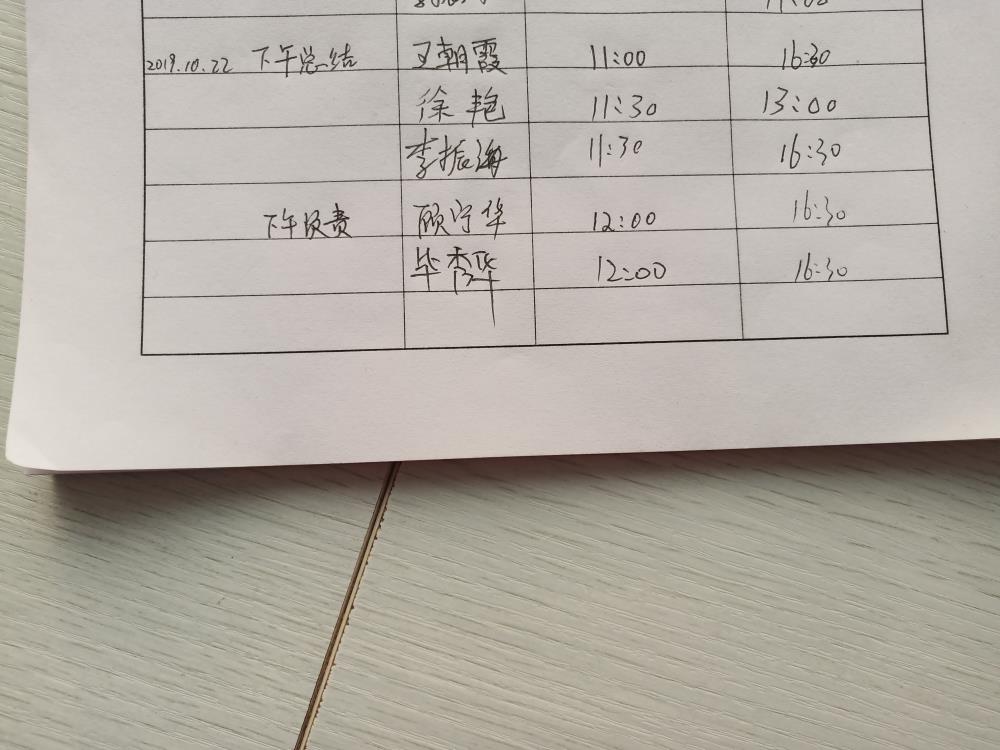 2019.10.22 下午总结 王朝霞 11:00 16:30
徐艳 11:30 13:00
李振海 11:30 16:30
下午负责 顾宁华 12:00 16:30
毕秀华 12:00 16:30